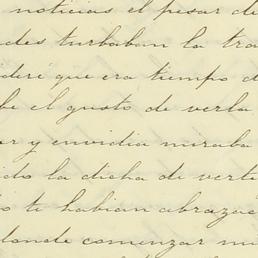 noticias el pesar de
des turbaban la tra
deré que era tiempo d
be el gusto de verla
er y envidia miraba
ido la dicha de verte
o te habian abrazado
donde comenzar mi